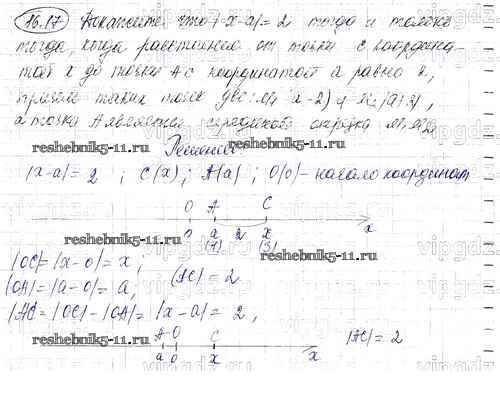 16.17 Докажите, что |x-a|=2 тогда и только
тогда, когда расстояние от точки с координа-
той x до точки A с координатой a равно 2,
причем таких точек две: M₁ (a-2) и M₂(a+2),
а точка A является серединой отрезка M₁M₂
Решение:
reshebnik5-11.ru
reshebnik5-11.ru
|x-a|=2 ; C(x); A(a) ; O(0)-начало координат
O A C
0 a 2 x x
(1) (3)
reshebnik5-11.ru
|OC|=|x-0|=x,
|OA|=|a-0|=a, |AC|=2
reshebnik5-11.ru
|AC|=|OC|-|OA|=|x-a|=2,
A O C |AC|=2
a 0 x x
reshebnik5-11.ru
vipgdz
vipgdz